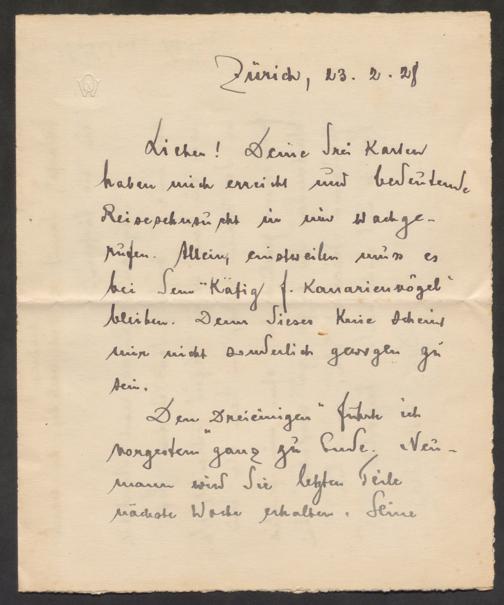 Zürich, 23. 2. 28
Lieber! Deine drei Karten
haben mich erreicht und bedeutende
Reisesehnsucht in mir wachge-
rufen. Allein, einstweilen muss es
bei dem "Käfig f. Kanarienvögel"
bleiben. Denn dieses Kine scheint
mir nicht sonderlich gewogen zu
sein.
Den Dreieinigen" führte ich
vorgestern "ganz zu Ende. Neu-
mann wird die letzten Teile
nächste Woche erhalten. Seine